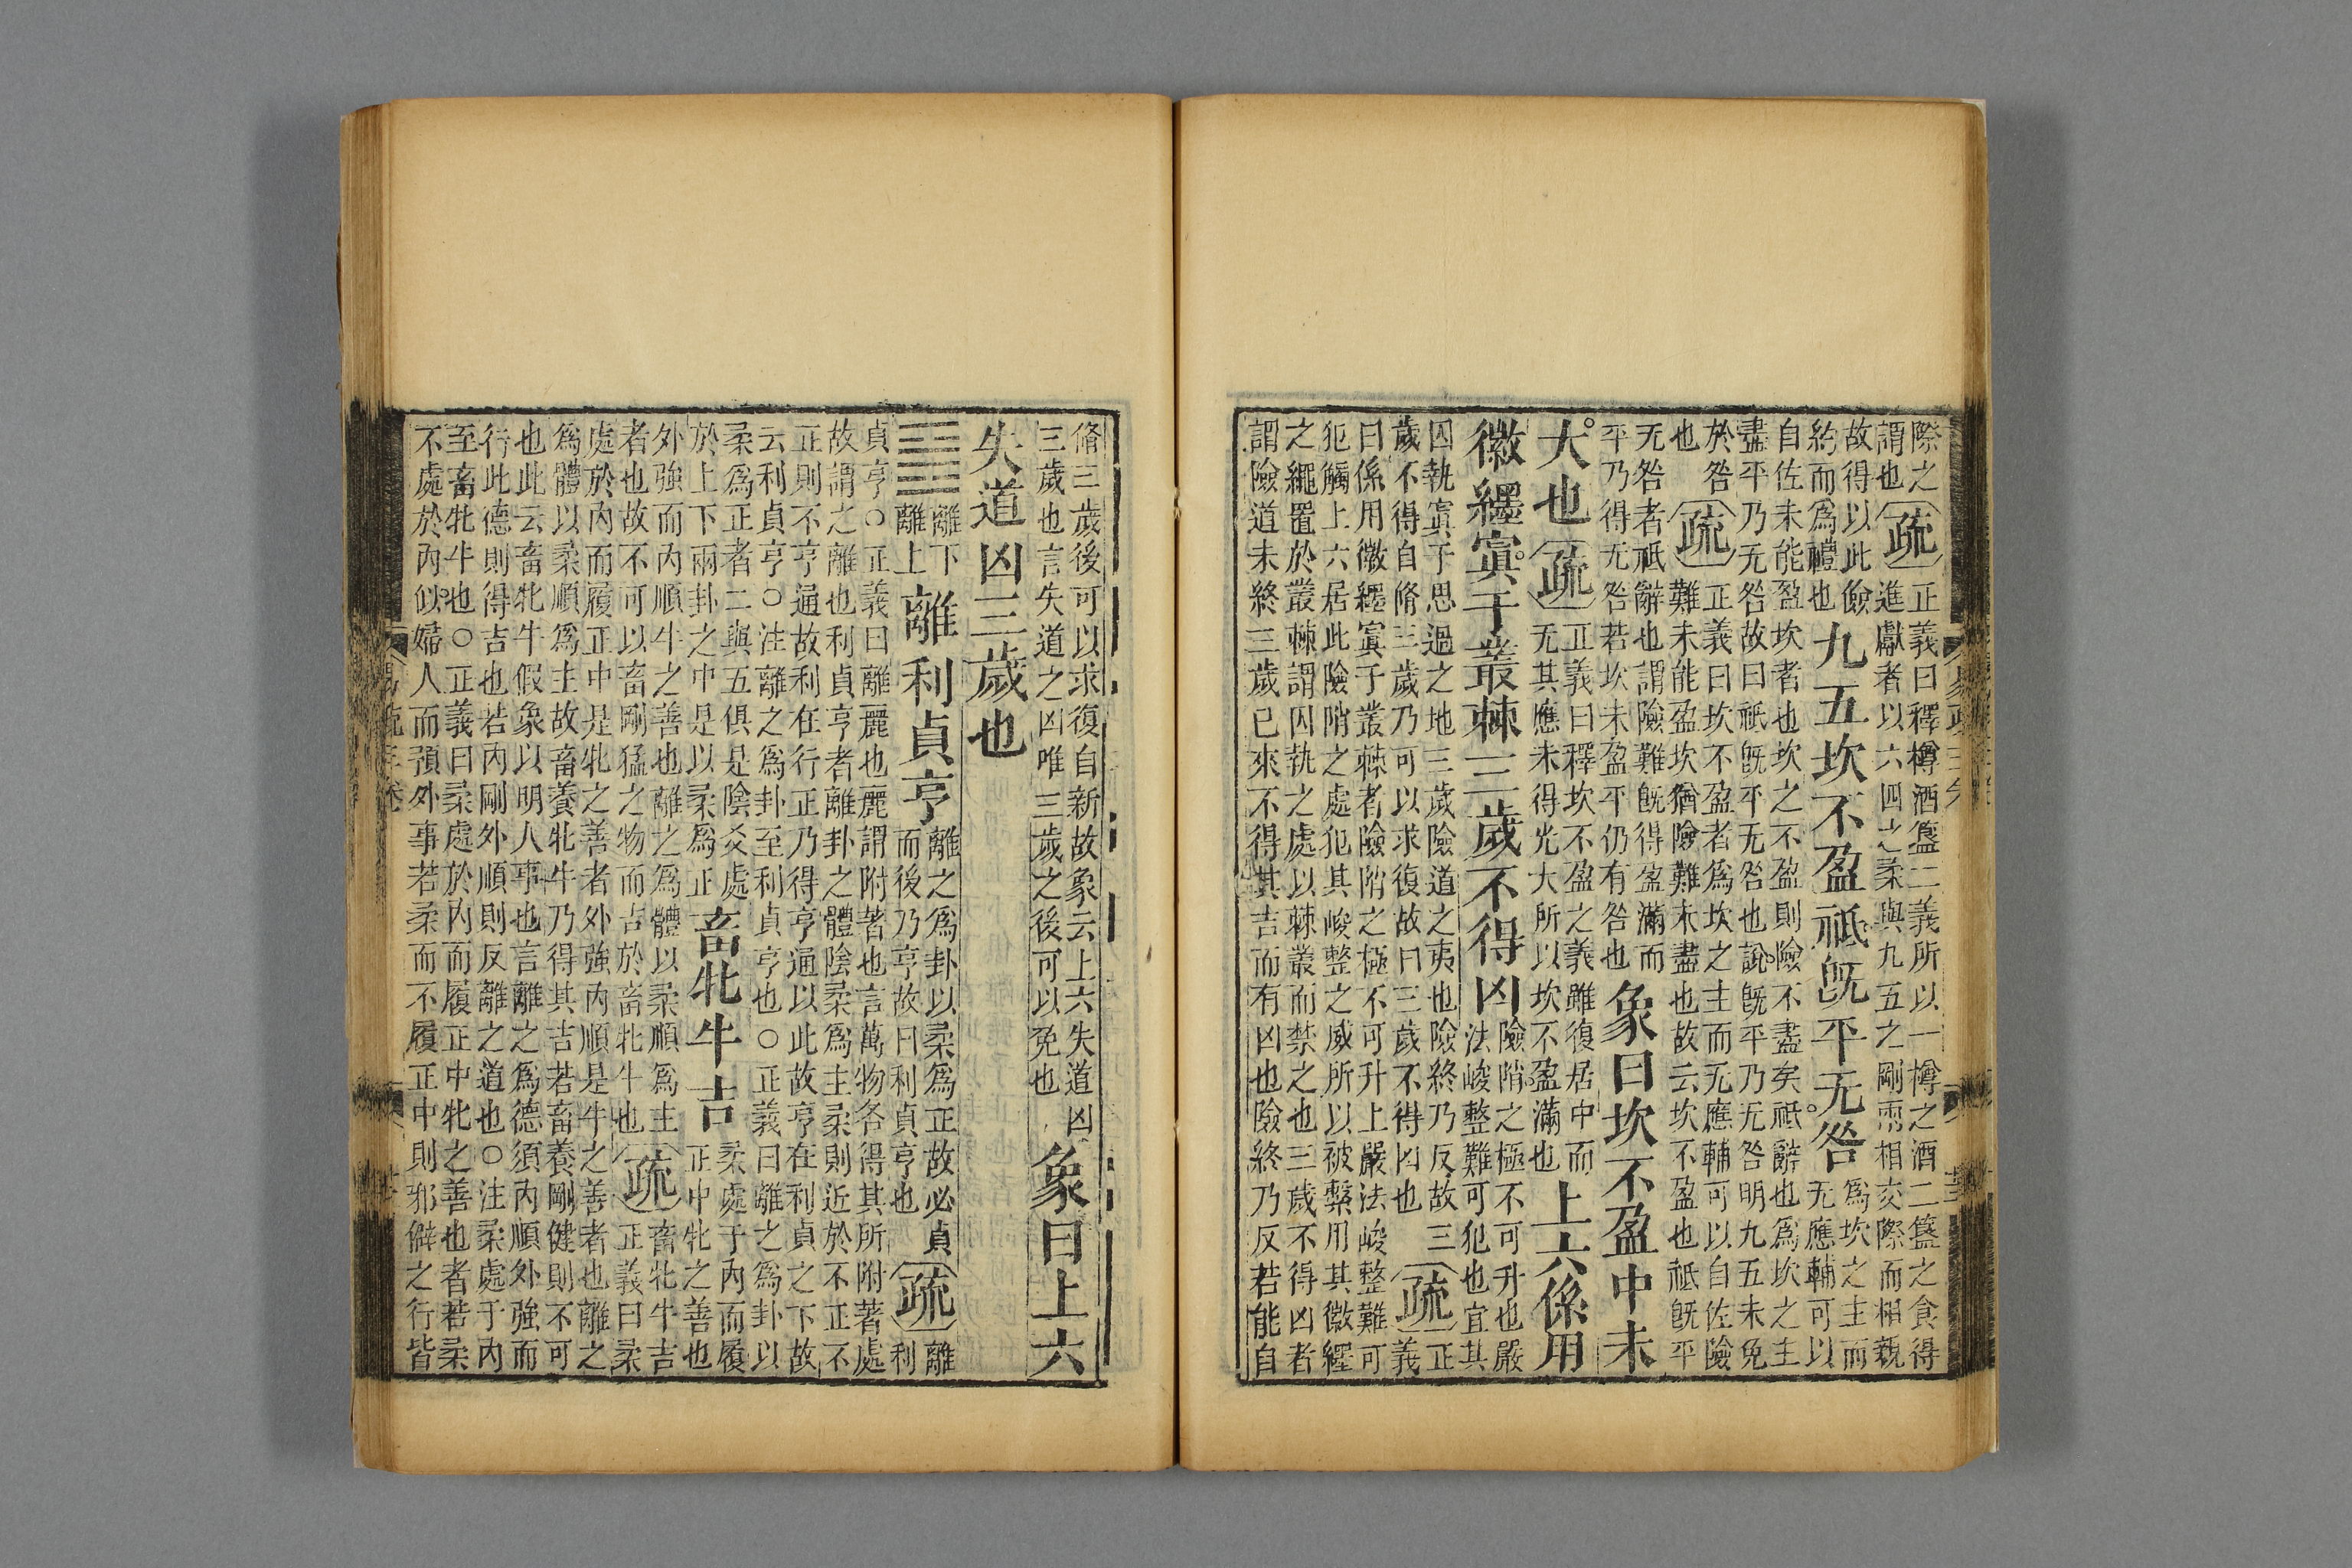 際之
謂也
疏
正義曰釋樽酒簋二義所以一樽之酒二簋之食得
進獻者以六四之柔與九五之剛兩相交際而相親
故得以此儉
約而爲禮也
九五坎不盈祗既平无咎
爲坎之主而
无應輔可以
自佐未能盈坎者也坎之不盈則險不盡矣祗辭也爲坎之主
盡平乃无咎故曰祗既平无咎也說既平乃无咎明九五未免
於咎
也
疏
正義曰坎不盈者爲坎之主而无應輔可以自佐險
難未能盈坎猶險難未盡也故云坎不盈也祗既平
无咎者祗辭也謂險難既得盈滿而
平乃得无咎若坎未盈平仍有咎也
象曰坎不盈中未
大也
疏
正義曰釋坎不盈之義雖復居中而
无其應未得光大所以坎不盈滿也
上六係用
徽纆寘于叢棘三歲不得凶
險陗之極不可升也嚴
法峻整難可犯也宜其
囚執寘于思過之地三歲險道之夷也險終乃反故三
歲不得自脩三歲乃可以求復故曰三歲不得凶也
疏
正
義
曰係用徽纆寘于叢棘者險陗之極不可升上嚴法峻整難可
犯觸上六居此險陗之處犯其峻整之威所以被繫用其徽纆
之繩置於叢棘謂囚執之處以棘叢而禁之也三歲不得凶者
謂險道未終三歲已來不得其吉而有凶也險終乃反若能自
脩三歲後可以求復自新故象云上六失道凶
三歲也言失道之凶唯三歲之後可以免也
象曰上六
失道凶三歲也
䷝
離下
離上
離利貞亨
離之爲卦以柔爲正故必貞
而後乃亨故曰利貞亨也
疏
離
利
貞亨○正義曰離麗也麗謂附著也言萬物各得其所附著處
故謂之離也利貞亨者離卦之體陰柔爲主柔則近於不正不
正則不亨通故利在行正乃得亨通以此故亨在利貞之下故
云利貞亨○注離之爲卦至利貞亨也○正義曰離之爲卦以
柔爲正者二與五俱是陰爻處
於上下兩卦之中是以柔爲正
畜牝牛吉
柔處于內而履
正中牝之善也
外強而內順牛之善也離之爲體以柔順爲主
者也故不可以畜剛猛之物而吉於畜牝牛也
疏
畜牝牛吉
正義曰柔
處於內而履正中是牝之善者外強內順是牛之善者也離之
爲體以柔順爲主故畜養牝牛乃得其吉若畜養剛健則不可
也此云畜牝牛假象以明人事也言離之爲德須內順外強而
行此德則得吉也若內剛外順則反離之道也○注柔處于內
至畜牝牛也○正義曰柔處於內而履正中牝之善也者若柔
不處於內似婦人而預外事若柔而不履正中則邪僻之行皆